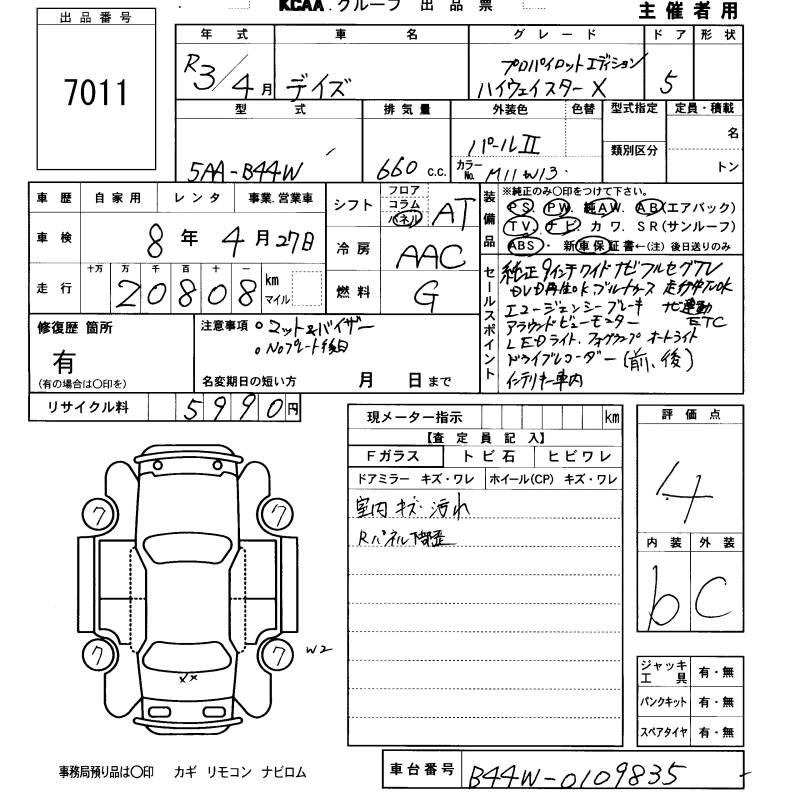 KCAA.グループ 出品票
主催者用
出品番号
7011
年式 車名 グレード ドア 形状
R3/4月 デイズ プロパイロットエディション ハイウェイスターX 5
型式 排気量 外装色 色替 型式指定 定員・積載
類別区分 名
トン
5AA-B44W 660 c.c. パールⅡ カラーNo. M11W13
車歴 自家用 レンタ 事業.営業車
車検 8年4月27日
走行 十万 万 千 百 十 一 km マイル
20808
シフト フロア コラム パネル AT
冷房 AAC
燃料 G
装備品
※純正のみ〇印をつけて下さい。
PS PW 純AW. AB(エアバック)
TV ナビ カワ. SR(サンルーフ)
ABS・ 新車保証書←(注)後日送りのみ
セールスポイント
純正9インチワイドナビフルセグTV
DVD再生OK ブルートゥース 走行中TVOK
エマージェンシーブレーキ ナビ連動
アラウンドビューモニター ETC
LEDライト.フォグランプ オートライト
ドライブレコーダー(前、後)
インテリキー車内
修復歴 箇所
有
(有の場合は〇印を)
注意事項 。マット&バイザー
。Noプレート後日
名変期日の短い方 月 日まで
リサイクル料 5990円
現メーター指示 km
【査定員記入】
Fガラス トビ石 ヒビワレ
ドアミラー キズ・ワレ ホイール(CP) キズ・ワレ
室内キズ・汚れ
Rパネル下部歪
評価点
4
内装 外装
b C
7 7
7 7 W2
XX
ジャッキ工具 有・無
パンクキット 有・無
スペアタイヤ 有・無
事務局預り品は〇印 カギ リモコン ナビロム
車台番号 B44W-0109835